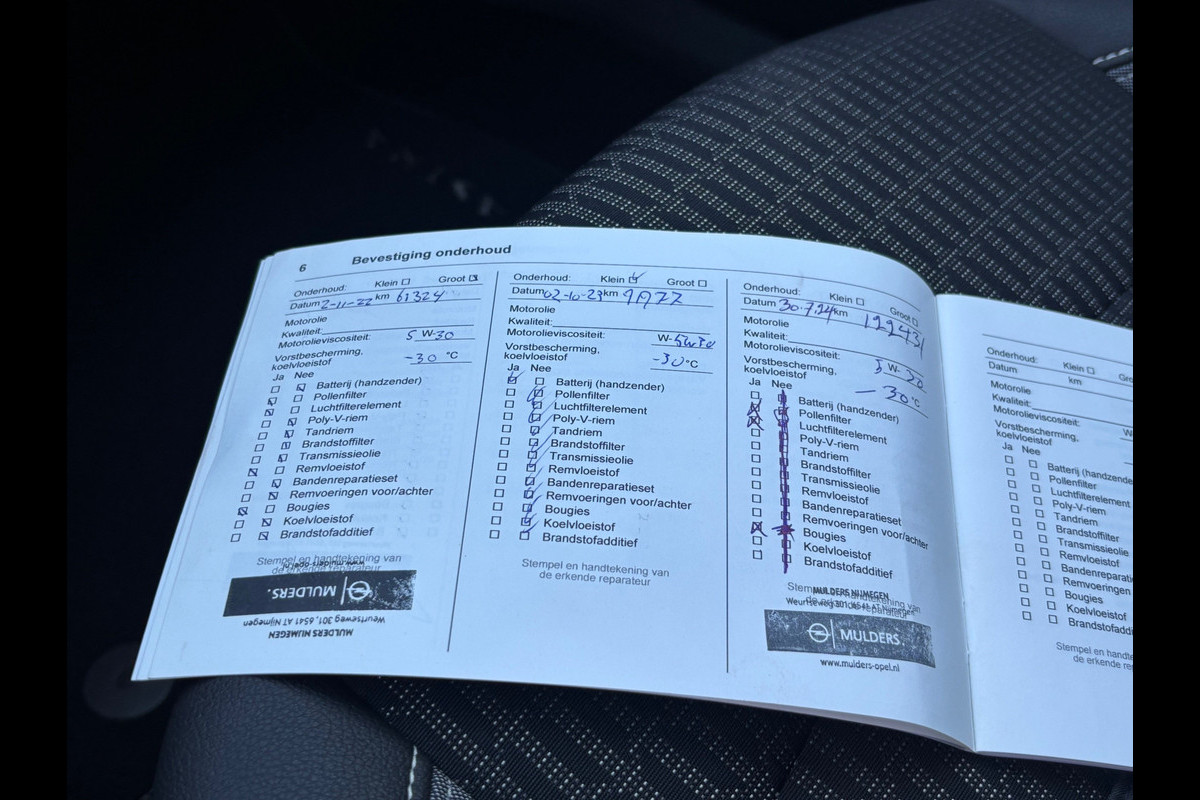 6 Bevestiging onderhoud
Onderhoud: Klein Groot
Datum 2-11-22 km 61324
Motorolie
Kwaliteit:
Motorolieviscositeit: 5 W-30
Vorstbescherming,
koelvloeistof -30 °C
Ja Nee
Batterij (handzender)
Pollenfilter
Luchtfilterelement
Poly-V-riem
Tandriem
Brandstoffilter
Transmissieolie
Remvloeistof
Bandenreparatieset
Remvoeringen voor/achter
Bougies
Koelvloeistof
Brandstofadditief
Stempel en handtekening van
de erkende reparateur
www.mulders-opel.nl
MULDERS.
Weurtseweg 301, 6541 AT Nijmegen
MULDERS NIJMEGEN
Onderhoud: Klein Groot
Datum 02-10-23 km
Motorolie
Kwaliteit:
Motorolieviscositeit: W-5W30
Vorstbescherming,
koelvloeistof -30 °C
Ja Nee
Batterij (handzender)
Pollenfilter
Luchtfilterelement
Poly-V-riem
Tandriem
Brandstoffilter
Transmissieolie
Remvloeistof
Bandenreparatieset
Remvoeringen voor/achter
Bougies
Koelvloeistof
Brandstofadditief
Stempel en handtekening van
de erkende reparateur
Onderhoud: Klein Groot
Datum 30.7.24 km 122431
Motorolie
Kwaliteit:
Motorolieviscositeit: W-
Vorstbescherming,
koelvloeistof -30 °C
Ja Nee
Batterij (handzender)
Pollenfilter
Luchtfilterelement
Poly-V-riem
Tandriem
Brandstoffilter
Transmissieolie
Remvloeistof
Bandenreparatieset
Remvoeringen voor/achter
Bougies
Koelvloeistof
Brandstofadditief
Stempel en handtekening van
de erkende reparateur
MULDERS NIJMEGEN
Weurtseweg 301, 6541 AT Nijmegen
MULDERS.
www.mulders-opel.nl
Onderhoud: Klein
Datum km
Motorolie
Kwaliteit:
Motorolieviscositeit:
Vorstbescherming,
koelvloeistof
Ja Nee
Batterij (handzende
Pollenfilter
Luchtfilterelement
Poly-V-riem
Tandriem
Brandstoffilter
Transmissieolie
Remvloeistof
Bandenreparati
Remvoeringen
Bougies
Koelvloeistof
Brandstofaddi
Stempel en handte
de erkende re